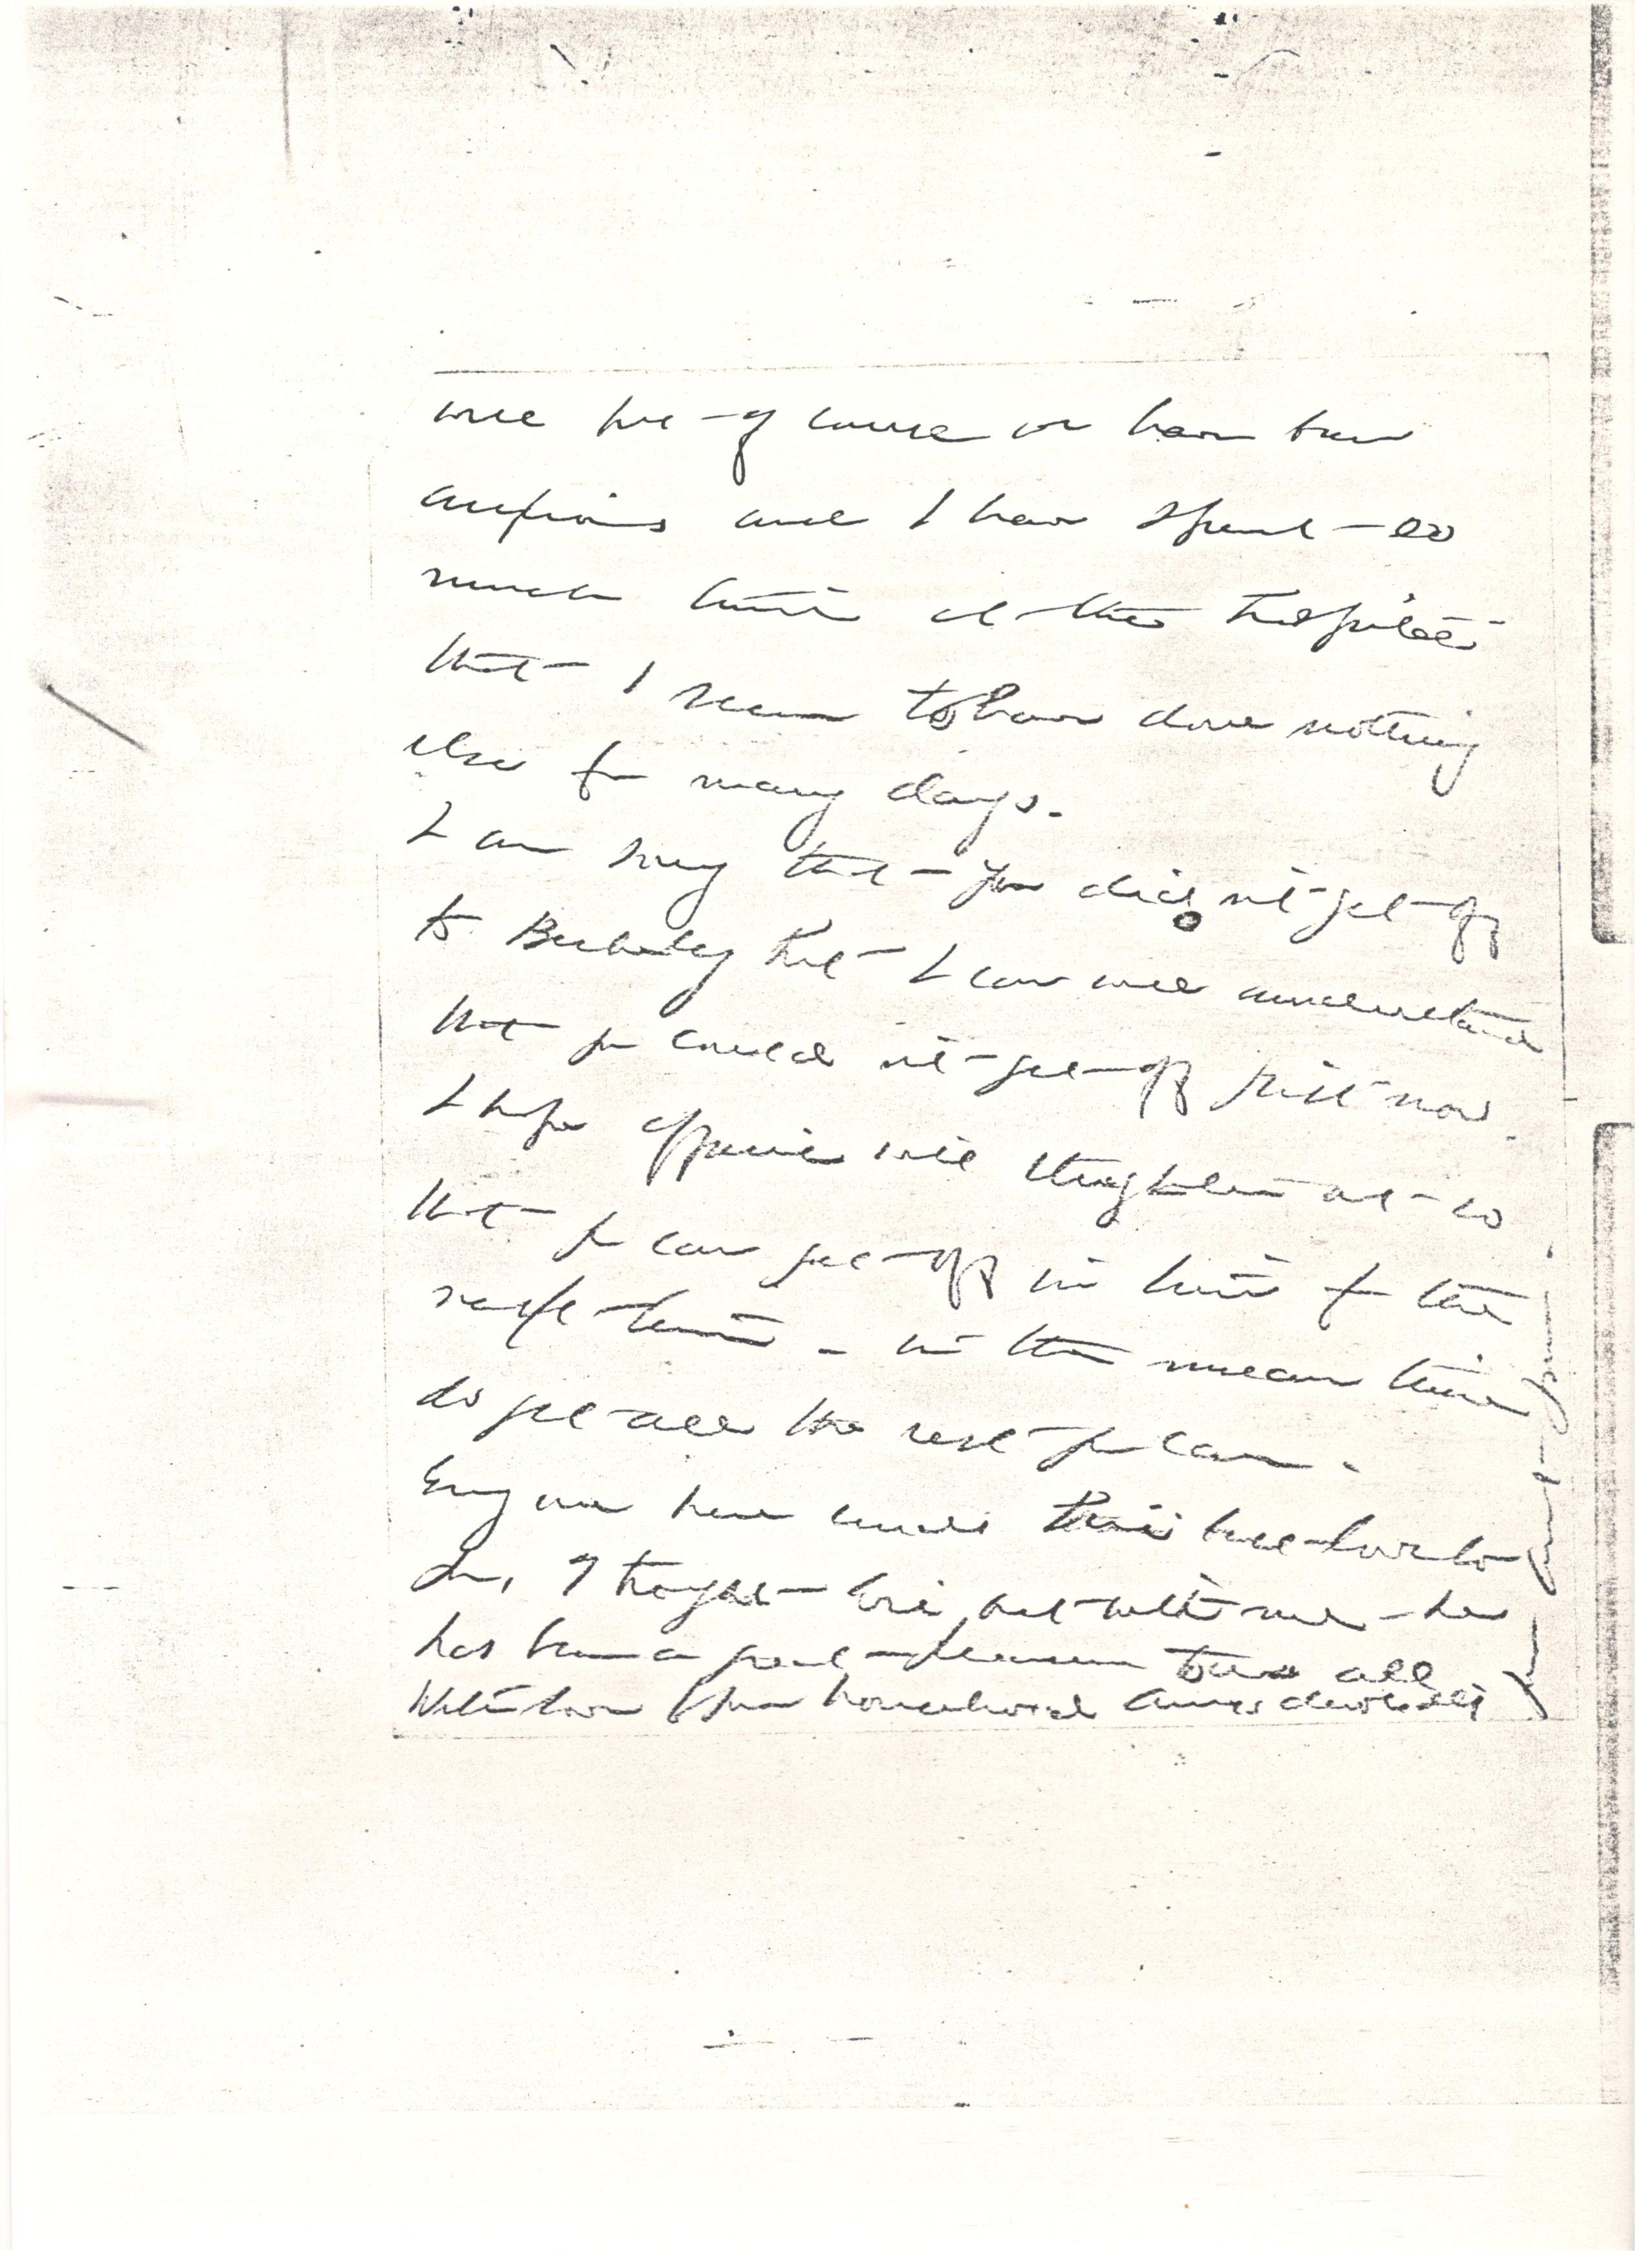 well but of course we have been
anxious and I have spent so
much time at the Hospital
that I seem to have done nothing
else for many days.
I am sorry that you did not get off
to Berkeley but I can well understand
that you could not get off just now.
I hope affairs will straighten out so
that you can get off in time for the
in the mean time
do get all the rest you can.
Every one here sends their best love to
you,
has been a great pleasure to us all
With love to your household always devotedly